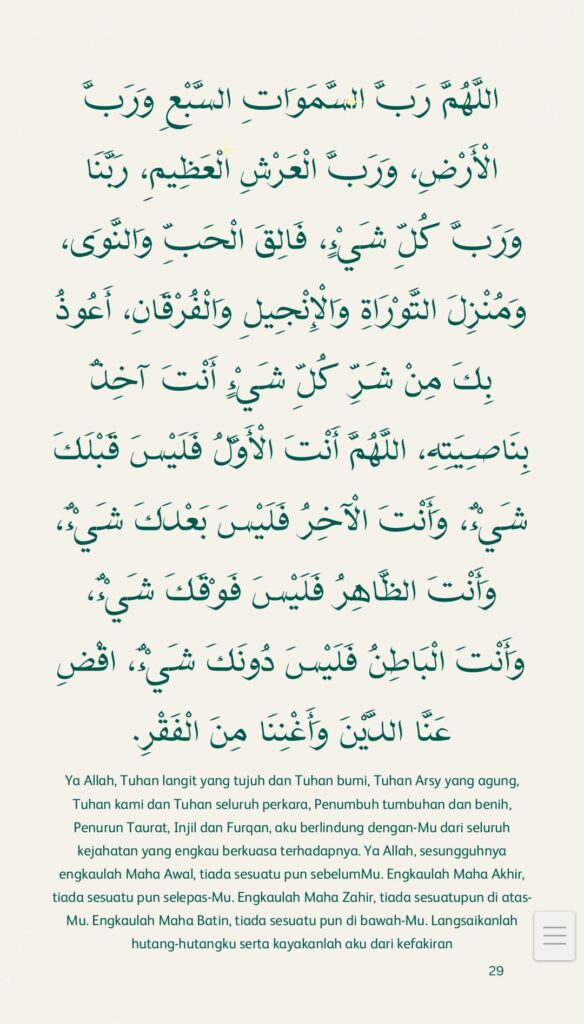 اللَّهُمَّ رَبَّ السَّمَوَاتِ السَّبْعِ وَرَبَّ
الْأَرْضِ، وَرَبَّ الْعَرْشِ الْعَظِيمِ، رَبَّنَا
وَرَبَّ كُلِّ شَيْءٍ، فَالِقَ الْحَبِّ وَالنَّوَى،
وَمُنْزِلَ التَّوْرَاةِ وَالْإِنْجِيلِ وَالْفُرْقَانِ، أَعُوذُ
بِكَ مِنْ شَرِّ كُلِّ شَيْءٍ أَنْتَ آخِذٌ
بِنَاصِيَتِهِ، اللَّهُمَّ أَنْتَ الْأَوَّلُ فَلَيْسَ قَبْلَكَ
شَيْءٌ، وَأَنْتَ الْآخِرُ فَلَيْسَ بَعْدَكَ شَيْءٌ،
وَأَنْتَ الظَّاهِرُ فَلَيْسَ فَوْقَكَ شَيْءٌ،
وَأَنْتَ الْبَاطِنُ فَلَيْسَ دُونَكَ شَيْءٌ، اقْضِ
عَنَّا الدَّيْنَ وَأَغْنِنَا مِنَ الْفَقْرِ.
Ya Allah, Tuhan langit yang tujuh dan Tuhan bumi, Tuhan Arsy yang agung,
Tuhan kami dan Tuhan seluruh perkara, Penumbuh tumbuhan dan benih,
Penurun Taurat, Injil dan Furqan, aku berlindung dengan-Mu dari seluruh
kejahatan yang engkau berkuasa terhadapnya. Ya Allah, sesungguhnya
engkaulah Maha Awal, tiada sesuatu pun sebelumMu. Engkaulah Maha Akhir,
tiada sesuatu pun selepas-Mu. Engkaulah Maha Zahir, tiada sesuatupun di atas-
Mu. Engkaulah Maha Batin, tiada sesuatu pun di bawah-Mu. Langsaikanlah
hutang-hutangku serta kayakanlah aku dari kefakiran
29